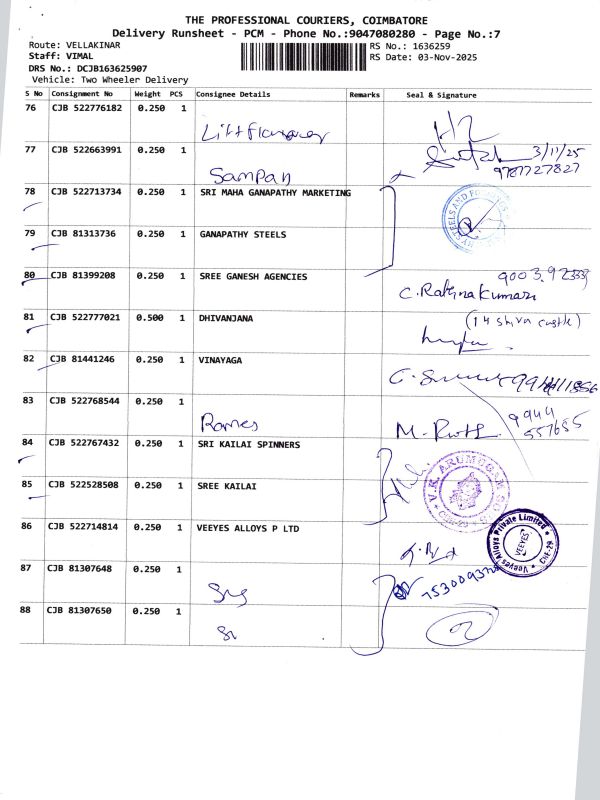 THE PROFESSIONAL COURIERS, COIMBATORE
Delivery Runsheet - PCM - Phone No.:9047080280 - Page No.:7
Route: VELLAKINAR
RS No.: 1636259
Staff: VIMAL
RS Date: 03-Nov-2025
DRS No.: DCJB163625907
Vehicle: Two Wheeler Delivery
S No Consignment No Weight PCS Consignee Details Remarks Seal & Signature
76 CJB 522776182 0.250 1
77 CJB 522663991 0.250 1
3/11/25
9787727827
Sampan
78 CJB 522713734 0.250 1 SRI MAHA GANAPATHY MARKETING
79 CJB 81313736 0.250 1 GANAPATHY STEELS
80 CJB 81399208 0.250 1 SREE GANESH AGENCIES
C. Rathnakumari
81 CJB 522777021 0.500 1 DHIVANJANA
(14 shiva castle)
82 CJB 81441246 0.250 1 VINAYAGA
83 CJB 522768544 0.250 1
9944
557685
Rames
84 CJB 522767432 0.250 1 SRI KAILAI SPINNERS
V.K. ARUMUGAM
85 CJB 522528508 0.250 1 SREE KAILAI
86 CJB 522714814 0.250 1 VEEYES ALLOYS P LTD
Veeyes Alloys Private Limited
VEEYES
CBE-29
87 CJB 81307648 0.250 1
88 CJB 81307650 0.250 1